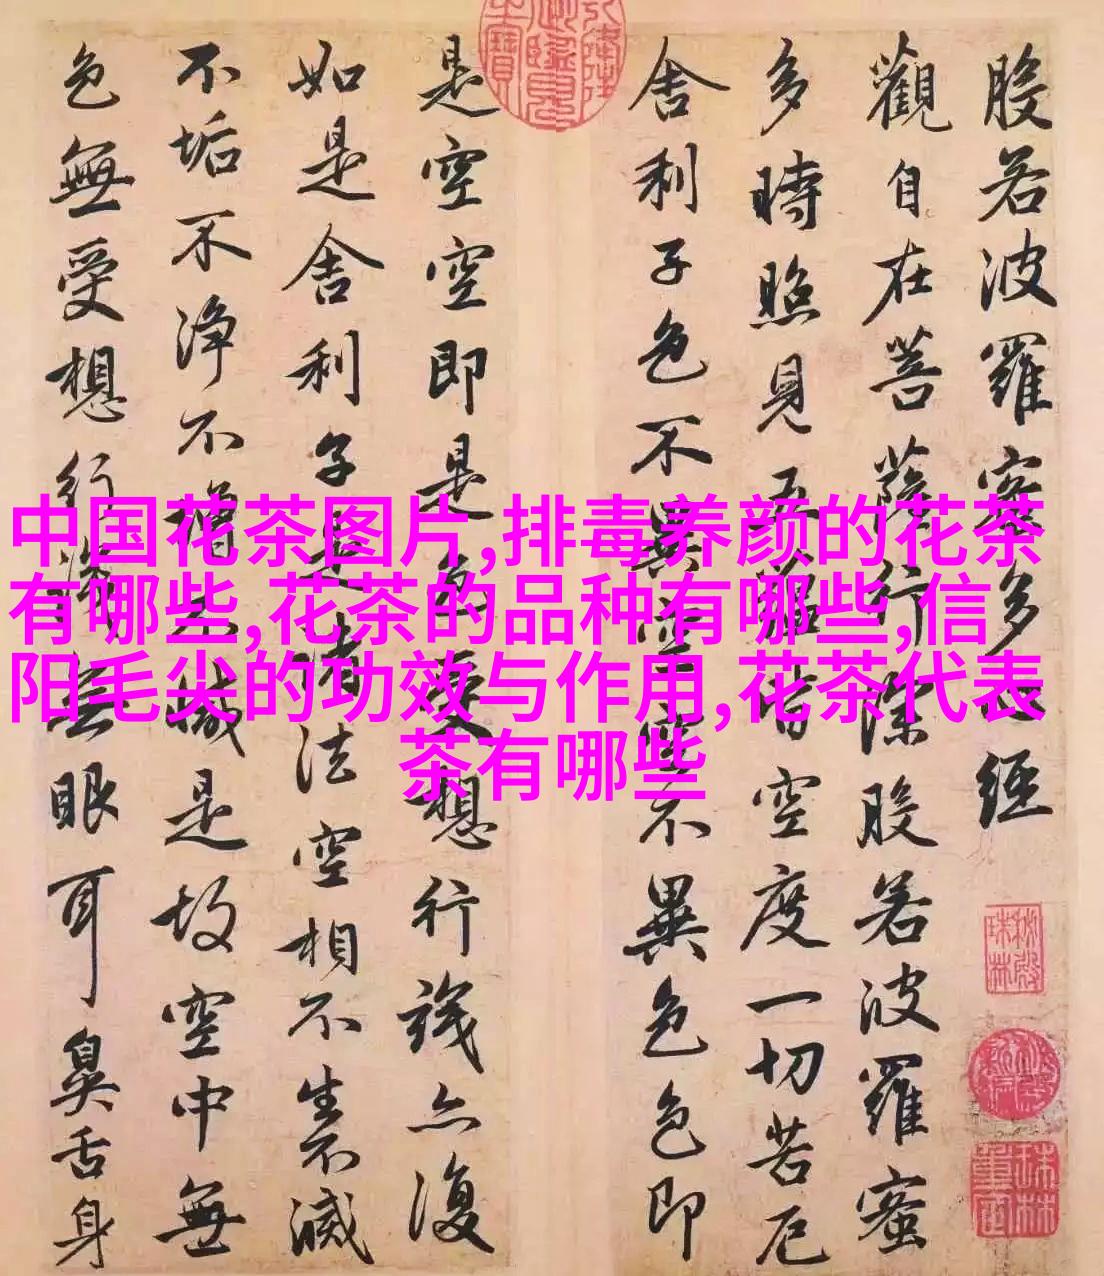 般若波羅蜜多心經
觀自在菩薩行深般若波羅蜜
多時照見五蘊皆空度一切苦厄
舍利子色不異空空不異色色即
是空空即是色受想行識亦復
如是舍利子是諸法空相不生不滅
不垢不净不增不減是故空中無
色無受想行識無眼耳鼻舌身
中国花茶图片,排毒养颜的花茶
有哪些,花茶的品种有哪些,信
阳毛尖的功效与作用,花茶代表
茶有哪些